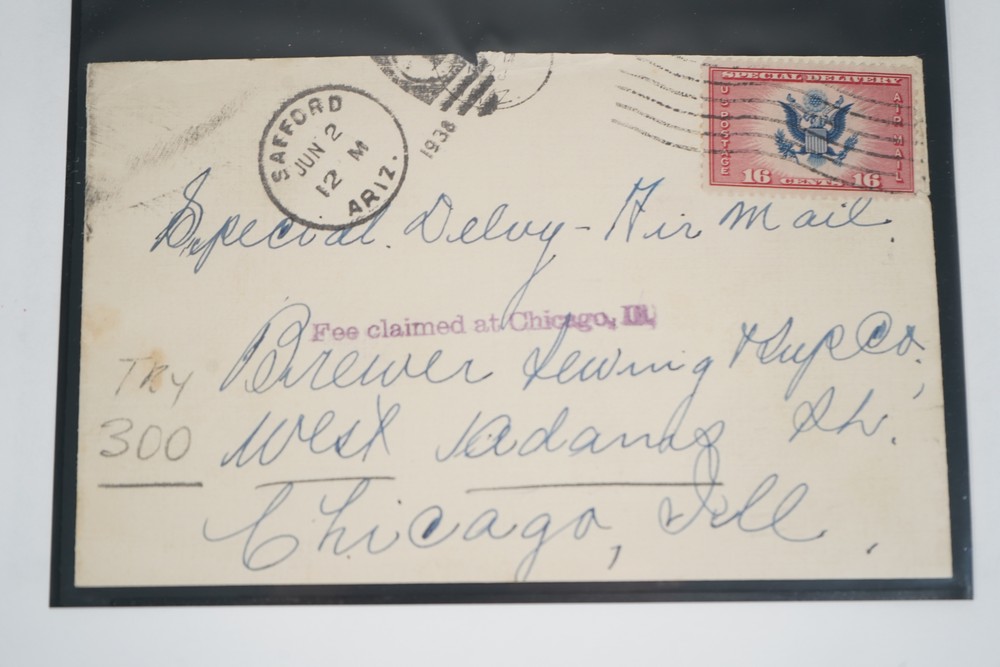 SAFFORD
JUN 2
12 M
ARIZ.
1938
SPECIAL DELIVERY
U.S. POSTAGE
AIR MAIL
16 CENTS 16
Special Delvy - Air Mail.
Fee claimed at Chicago, Ill.
Brewer Sewing & Sup Co,
TRY
300 West Adams St.
Chicago, Ill.